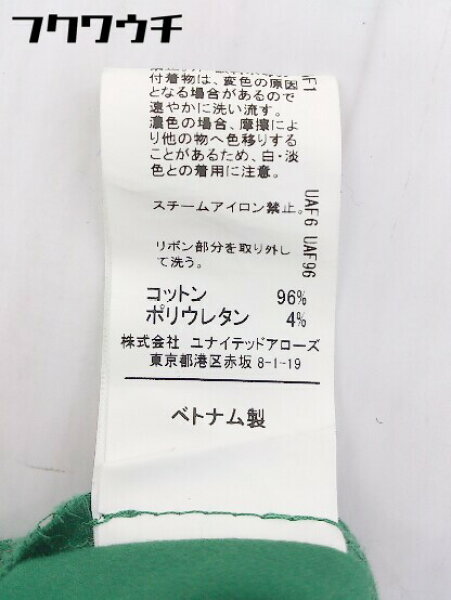 フクワウチ
付着物は、変色の原因
となる場合があるので
速やかに洗い流す。
濃色の場合、摩擦によ
り他の物へ色移りする
ことがあるため、白・淡
色との着用に注意。
スチームアイロン禁止。
リボン部分を取り外し
て洗う。
コットン 96%
ポリウレタン 4%
株式会社 ユナイテッドアローズ
東京都港区赤坂 8-1-19
ベトナム製
UAF6 UAF96